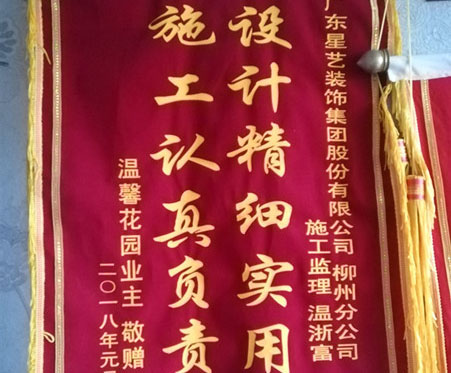 广东星艺装饰集团股份有限公司 柳州分公司
施工监理 温浙富
设计精细实用
施工认真负责
温馨花园业主 敬赠
二〇一八年元